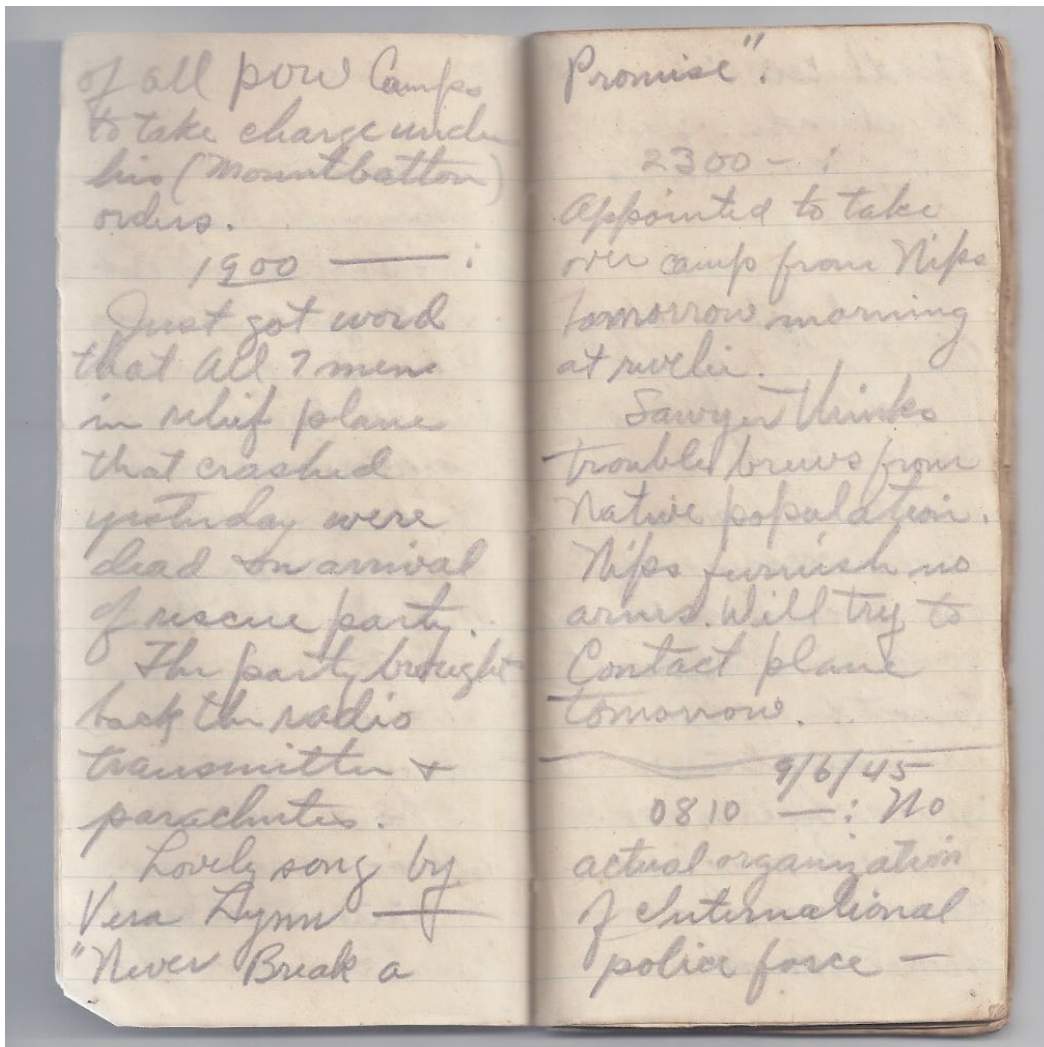 of all pow Camps
to take charge under
his (Mountbatton)
orders.
1900 — :
Just got word
that all 7 men
in relief plane
that crashed
yesterday were
dead on arrival
of rescue party.
The party brought
back the radio
transmitter +
parachutes.
Lovely song by
Vera Lynn —
"Never Break a
Promise".
2300 - :
Appointed to take
over camp from Nips
tomorrow morning
at
Sawyer thinks
trouble brews from
Native population.
Nips furnish no
arms. Will try to
Contact plane
tomorrow.
9/6/45
0810 — : No
actual organization
of International
police force —